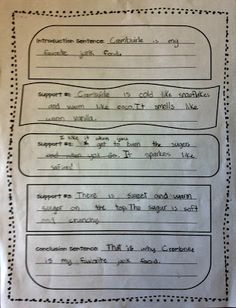 Introduction Sentence: Crembrule is my
favorite junk food.
Support #1: Crembrule is cold like snowflakes
and warm like coco. It smells like
warm vanilla.
I like it when you
Support #2: get to burn the sugar
and when you do. It sparkles like
Support #3: There is sweet and warm
sugar on the top. The sugar is soft
and crunchy.
Conclusion Sentence: That is why Crembrule
is my favorite junk food.